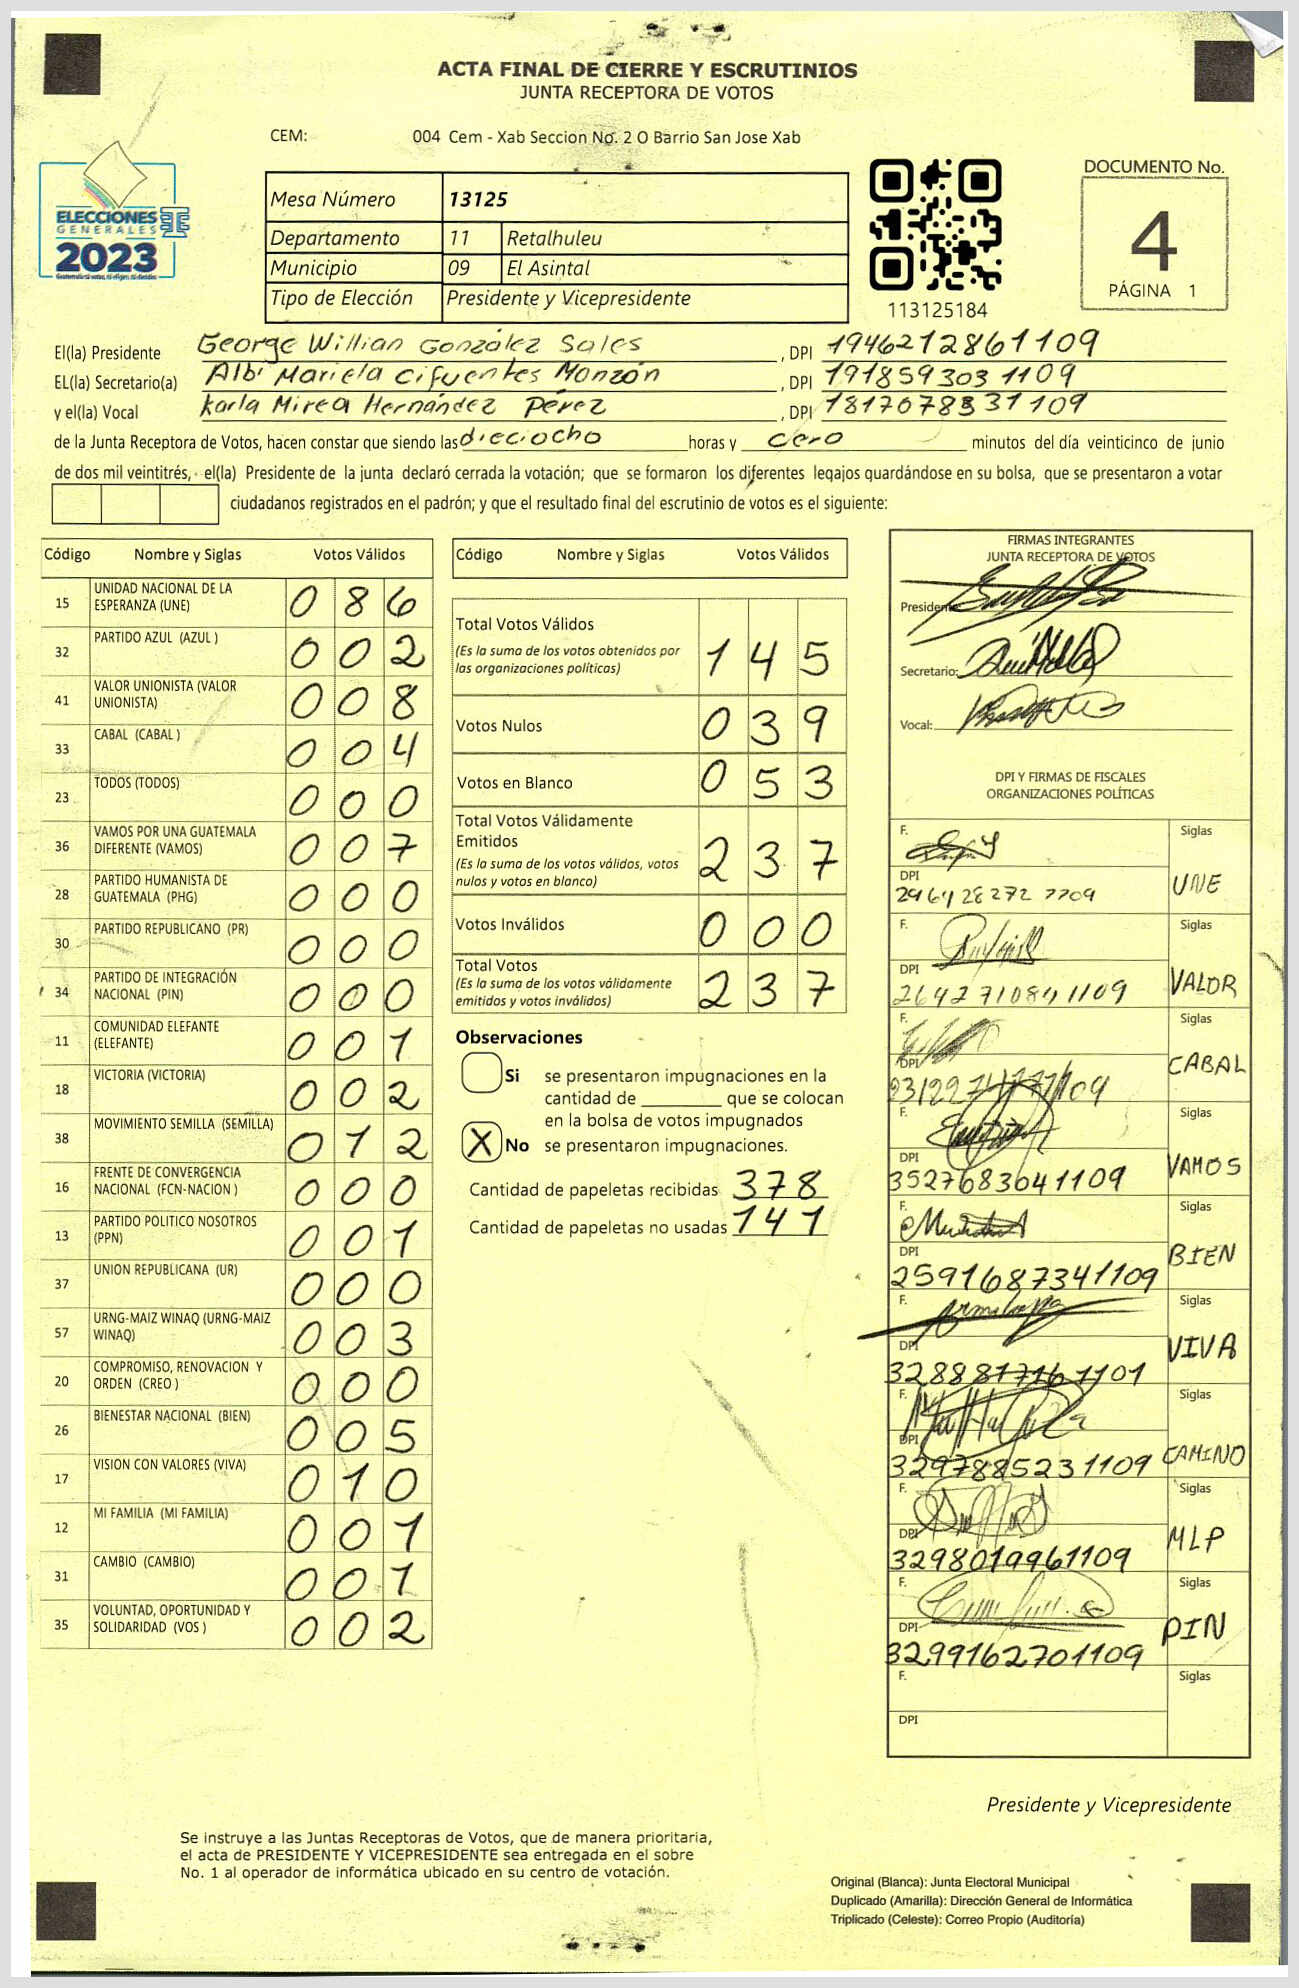 ACTA FINAL DE CIERRE Y ESCRUTINIOS
JUNTA RECEPTORA DE VOTOS
CEM: 004 Cem - Xab Seccion No. 2 O Barrio San Jose Xab
ELECCIONES
GENERALES
2023
Mesa Número 13125
Departamento 11 Retalhuleu
Municipio 09 El Asintal
Tipo de Elección Presidente y Vicepresidente
113125184
DOCUMENTO No.
4
PÁGINA 1
El(la) Presidente George Willian González Sales , DPI 1946212861109
EL(la) Secretario(a) Albi Mariela Cifuentes Monzón , DPI 1918593031109
y el(la) Vocal Karla Mirea Hernández Pérez , DPI 1817078331109
de la Junta Receptora de Votos, hacen constar que siendo las dieciocho horas y cero minutos del día veinticinco de junio
de dos mil veintitrés, el(la) Presidente de la junta declaró cerrada la votación; que se formaron los diferentes legajos guardándose en su bolsa, que se presentaron a votar
ciudadanos registrados en el padrón; y que el resultado final del escrutinio de votos es el siguiente:
Código Nombre y Siglas Votos Válidos
15 UNIDAD NACIONAL DE LA ESPERANZA (UNE) 086
32 PARTIDO AZUL (AZUL ) 002
41 VALOR UNIONISTA (VALOR UNIONISTA) 008
33 CABAL (CABAL ) 004
23 TODOS (TODOS) 000
36 VAMOS POR UNA GUATEMALA DIFERENTE (VAMOS) 007
28 PARTIDO HUMANISTA DE GUATEMALA (PHG) 000
30 PARTIDO REPUBLICANO (PR) 000
34 PARTIDO DE INTEGRACIÓN NACIONAL (PIN) 000
11 COMUNIDAD ELEFANTE (ELEFANTE) 001
18 VICTORIA (VICTORIA) 002
38 MOVIMIENTO SEMILLA (SEMILLA) 012
16 FRENTE DE CONVERGENCIA NACIONAL (FCN-NACION ) 000
13 PARTIDO POLITICO NOSOTROS (PPN) 001
37 UNION REPUBLICANA (UR) 000
57 URNG-MAIZ WINAQ (URNG-MAIZ WINAQ) 003
20 COMPROMISO, RENOVACION Y ORDEN (CREO ) 000
26 BIENESTAR NACIONAL (BIEN) 005
17 VISION CON VALORES (VIVA) 010
12 MI FAMILIA (MI FAMILIA) 001
31 CAMBIO (CAMBIO) 001
35 VOLUNTAD, OPORTUNIDAD Y SOLIDARIDAD (VOS ) 002
Código Nombre y Siglas Votos Válidos
Total Votos Válidos 145
(Es la suma de los votos obtenidos por
las organizaciones políticas)
Votos Nulos 039
Votos en Blanco 053
Total Votos Válidamente
Emitidos 237
(Es la suma de los votos válidos, votos
nulos y votos en blanco)
Votos Inválidos 000
Total Votos 237
(Es la suma de los votos válidamente
emitidos y votos inválidos)
Observaciones
Si se presentaron impugnaciones en la
cantidad de ________ que se colocan
en la bolsa de votos impugnados
X No se presentaron impugnaciones.
Cantidad de papeletas recibidas 378
Cantidad de papeletas no usadas 141
FIRMAS INTEGRANTES
JUNTA RECEPTORA DE VOTOS
Presidente:
Secretario:
Vocal:
DPI Y FIRMAS DE FISCALES
ORGANIZACIONES POLÍTICAS
F. Siglas
DPI UNE
F. Siglas
DPI VALOR
F. Siglas
DPI CABAL
F. Siglas
DPI VAMOS
3527683041109
F. Siglas
DPI BIEN
2591687341109
F. Siglas
DPI VIVA
3288817161101
F. Siglas
DPI CAMINO
3297885231109
F. Siglas
DPI MLP
3298019961109
F. Siglas
DPI PIN
3299162701109
F. Siglas
DPI
Presidente y Vicepresidente
Se instruye a las Juntas Receptoras de Votos, que de manera prioritaria,
el acta de PRESIDENTE Y VICEPRESIDENTE sea entregada en el sobre
No. 1 al operador de informática ubicado en su centro de votación.
Original (Blanca): Junta Electoral Municipal
Duplicado (Amarilla): Dirección General de Informática
Triplicado (Celeste): Correo Propio (Auditoría)